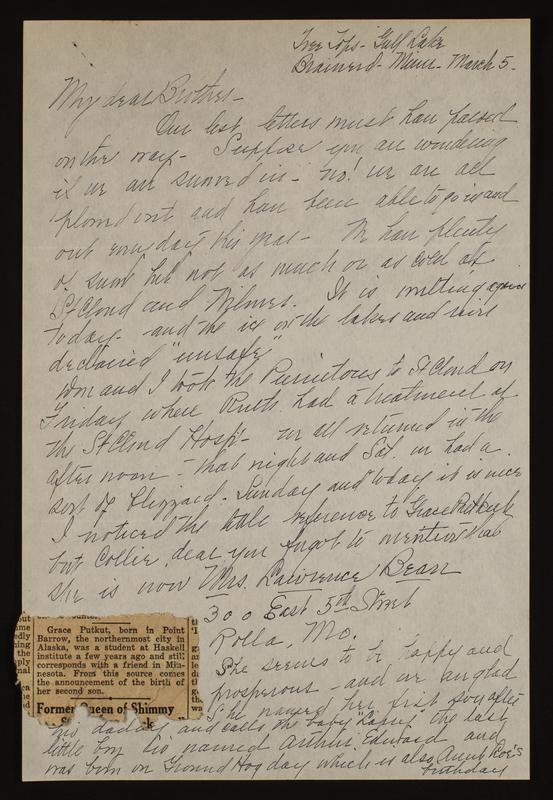 Tree Tops - Gull Lake
Brainerd - Minn - March 5.
My dear Brother -
Our last letters must have passed
on the way - Suppose you are wondering
if we are snowed in - No! we are all
plowed out and have been able to go in and
out every day this year - We have plenty
of snow but not as much or as cold as
St Cloud and Wilmar. It is melting again
today - and the ice on the lakes and
declared "unsafe"
Wm and I took the to St Cloud on
Friday where Ruth had a treatment at
the St Cloud Hosp - we all returned in the
after noon - that night and Sat. we had a
sort of blizzard - Sunday and today it is nice
I noticed the little reference to Grace Putkuk
but Collie, dear you forgot to mention that
she is now Mrs. Lawrence Bean
300 East 5th Street
Rolla, Mo.
She seems to be happy and
prosperous - and we are glad
She named her first boy after
his daddy and calls the baby "Larry" the last
little boy is named Arthur Edward and
was born on Ground Hog day which is also Aunt Roe's
birthday
Grace Putkut, born in Point
Barrow, the northernmost city in
Alaska, was a student at Haskell
institute a few years ago and still
corresponds with a friend in Min-
nesota. From this source comes
the announcement of the birth of
her second son.
Former Queen of Shimmy